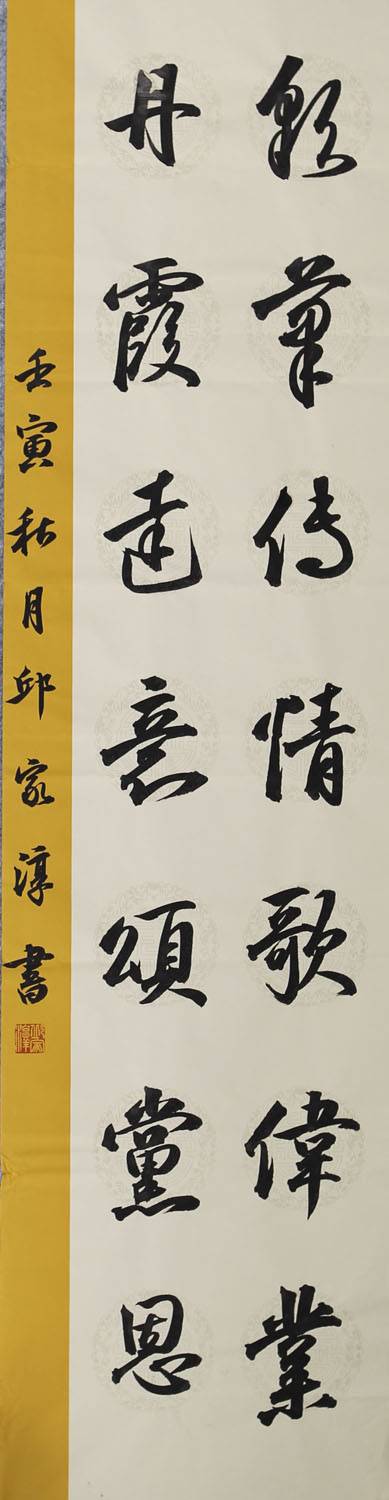 筆傳情歌偉業
丹霞達意頌黨恩
壬寅秋月邱家淳書